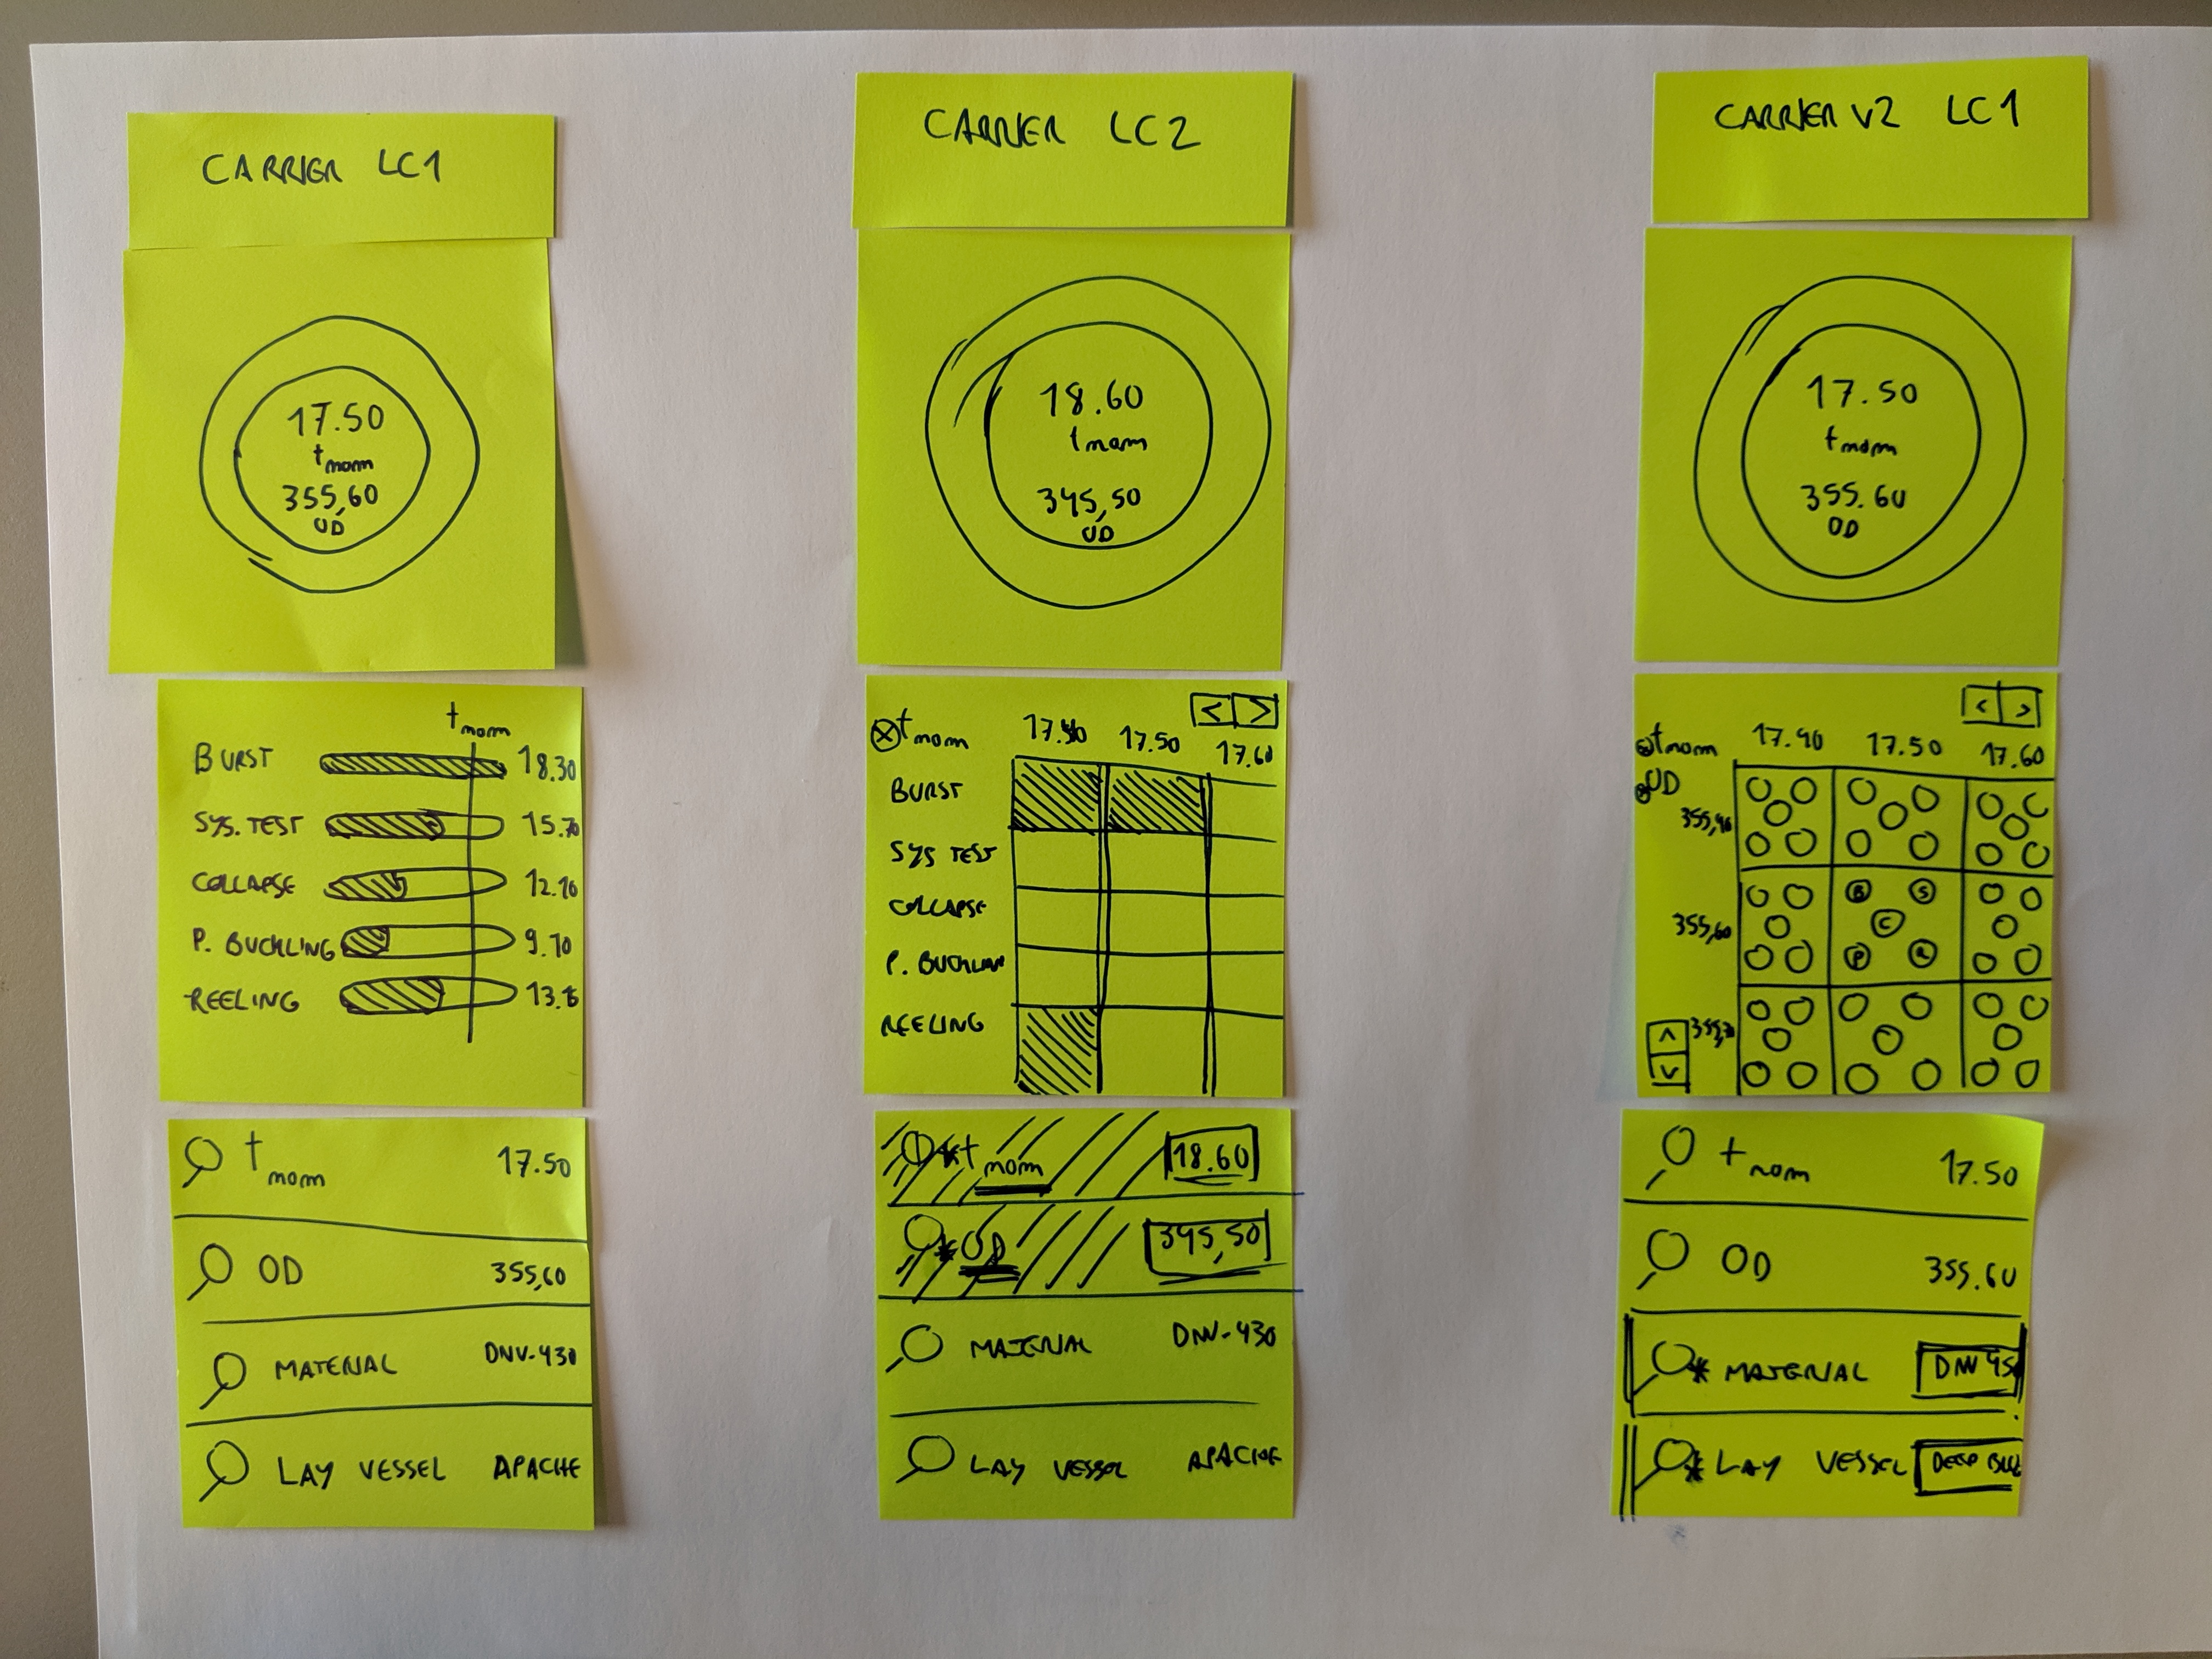 CARRIER LC1
17.50
tnom
355,60
OD
tnom
BURST 18.30
SYS. TEST 15.70
COLLAPSE 12.10
P. BUCKLING 9.70
REELING
tnom 17.50
OD 355,60
MATERIAL DNV-430
LAY VESSEL APACHE
CARRIER LC2
18.60
tnom
345,50
OD
< >
tnom 17.50 17.60
BURST
SYS TEST
COLLAPSE
P. BUCKLING
REELING
*tnom 18.60
*OD 345,50
MATERIAL DNV-430
LAY VESSEL APACHE
CARRIER V2 LC1
17.50
tnom
355.60
OD
< >
tnom 17.40 17.50 17.60
OD
355,60
B S
C
P R
tnom 17.50
OD 355.60
* MATERIAL DNV 45
* LAY VESSEL DEEP BLUE